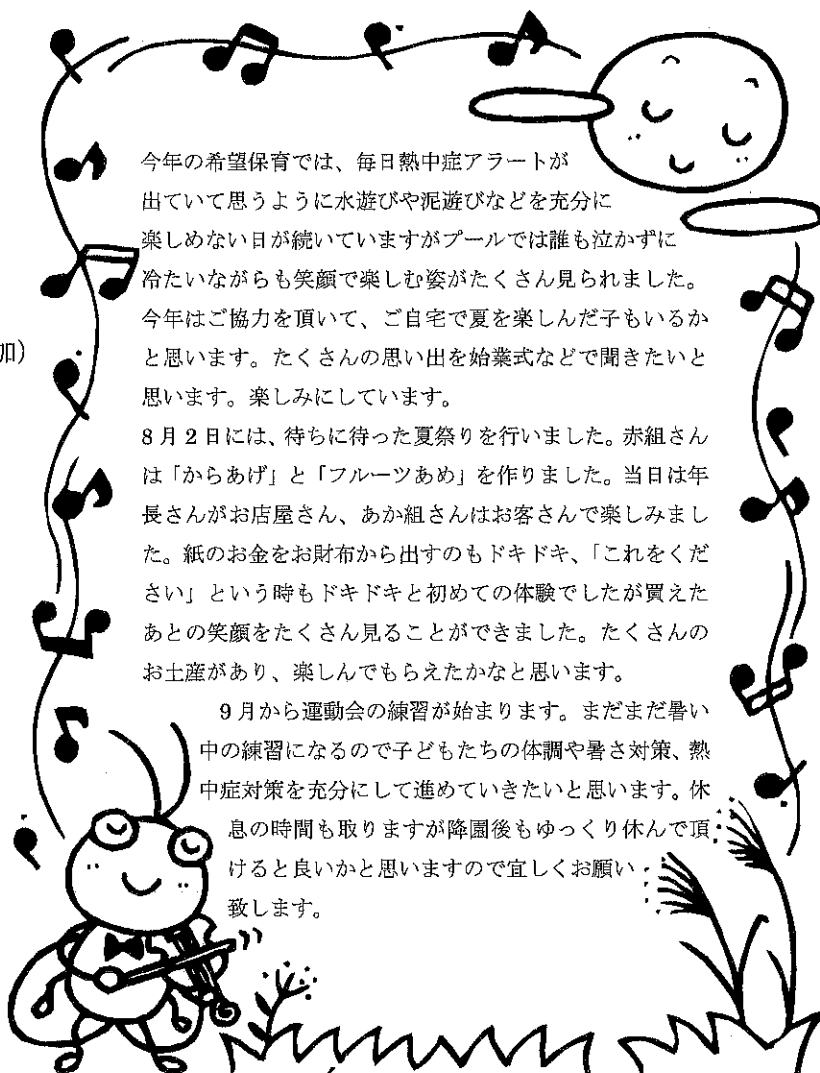 今年の希望保育では、毎日熱中症アラートが
出ていて思うように水遊びや泥遊びなどを充分に
楽しめない日が続いていますがプールでは誰も泣かずに
冷たいながらも笑顔で楽しむ姿がたくさん見られました。
今年はご協力を頂いて、ご自宅で夏を楽しんだ子もいるか
と思います。たくさんの思い出を始業式などで聞きたいと
思います。楽しみにしています。
8月2日には、待ちに待った夏祭りを行いました。赤組さん
は「からあげ」と「フルーツあめ」を作りました。当日は年
長さんがお店屋さん、あか組さんはお客さんで楽しみまし
た。紙のお金をお財布から出すのもドキドキ、「これをくだ
さい」という時もドキドキと初めての体験でしたが買えた
あとの笑顔をたくさん見ることができました。たくさんの
お土産があり、楽しんでもらえたかなと思います。
9月から運動会の練習が始まります。まだまだ暑い
中の練習になるので子どもたちの体調や暑さ対策、熱
中症対策を充分にして進めていきたいと思います。休
息の時間も取りますが降園後もゆっくり休んで頂
けると良いかと思いますので宜しくお願い
致します。
加)